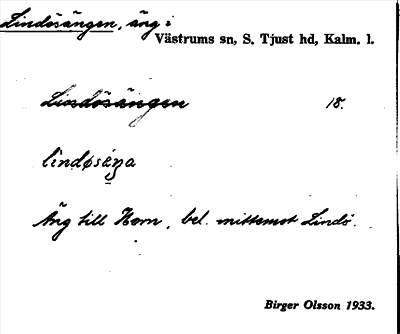 Lindösängen, äng i
Västrums sn, S. Tjust hd, Kalm. l.
Lindösängen 18.
Äng till Horn, bel. mittemot Lindö.
Birger Olsson 1933.